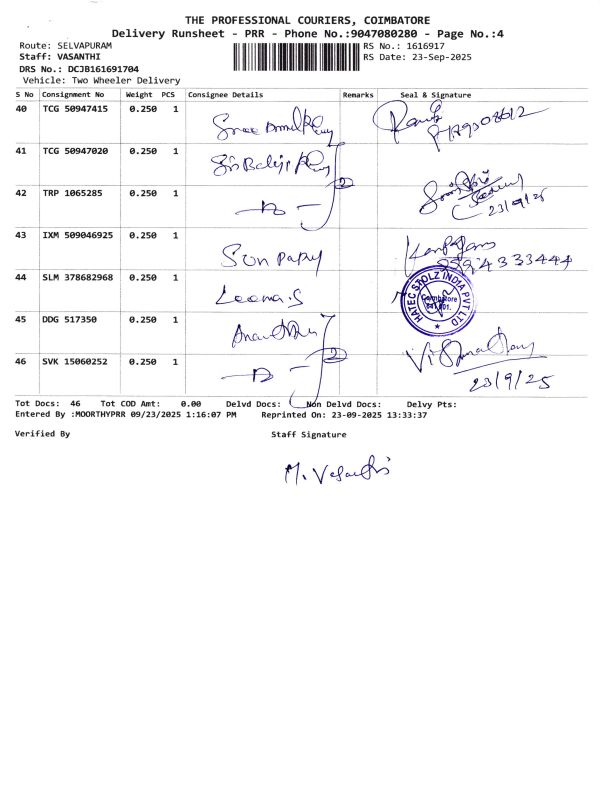 THE PROFESSIONAL COURIERS, COIMBATORE
Delivery Runsheet - PRR - Phone No.:9047080280 - Page No.:4
Route: SELVAPURAM
Staff: VASANTHI
DRS No.: DCJB161691704
Vehicle: Two Wheeler Delivery
RS No.: 1616917
RS Date: 23-Sep-2025
S No Consignment No Weight PCS Consignee Details Remarks Seal & Signature
40 TCG 50947415 0.250 1
41 TCG 50947020 0.250 1
42 TRP 1065285 0.250 1
23/9/25
43 IXM 509046925 0.250 1 Sun papy
44 SLM 378682968 0.250 1 Leema.S
HATEC STOLZ INDIA PVT LTD
Coimbatore
45 DDG 517350 0.250 1
46 SVK 15060252 0.250 1
23/9/25
Tot Docs: 46 Tot COD Amt: 0.00 Delvd Docs: Non Delvd Docs: Delvy Pts:
Entered By :MOORTHYPRR 09/23/2025 1:16:07 PM Reprinted On: 23-09-2025 13:33:37
Verified By Staff Signature
M. Vasanthi